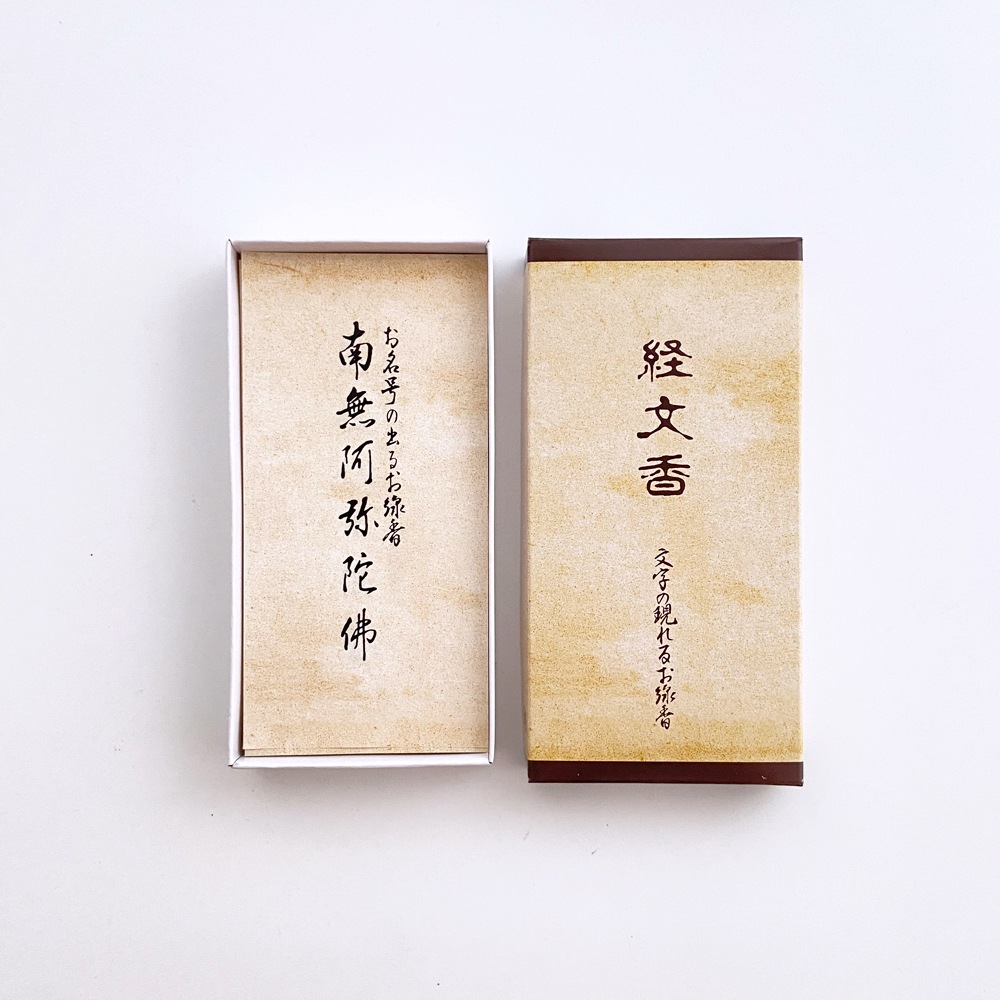 お名号の出るお線香
南無阿弥陀佛
経文香
文字の現れるお線香